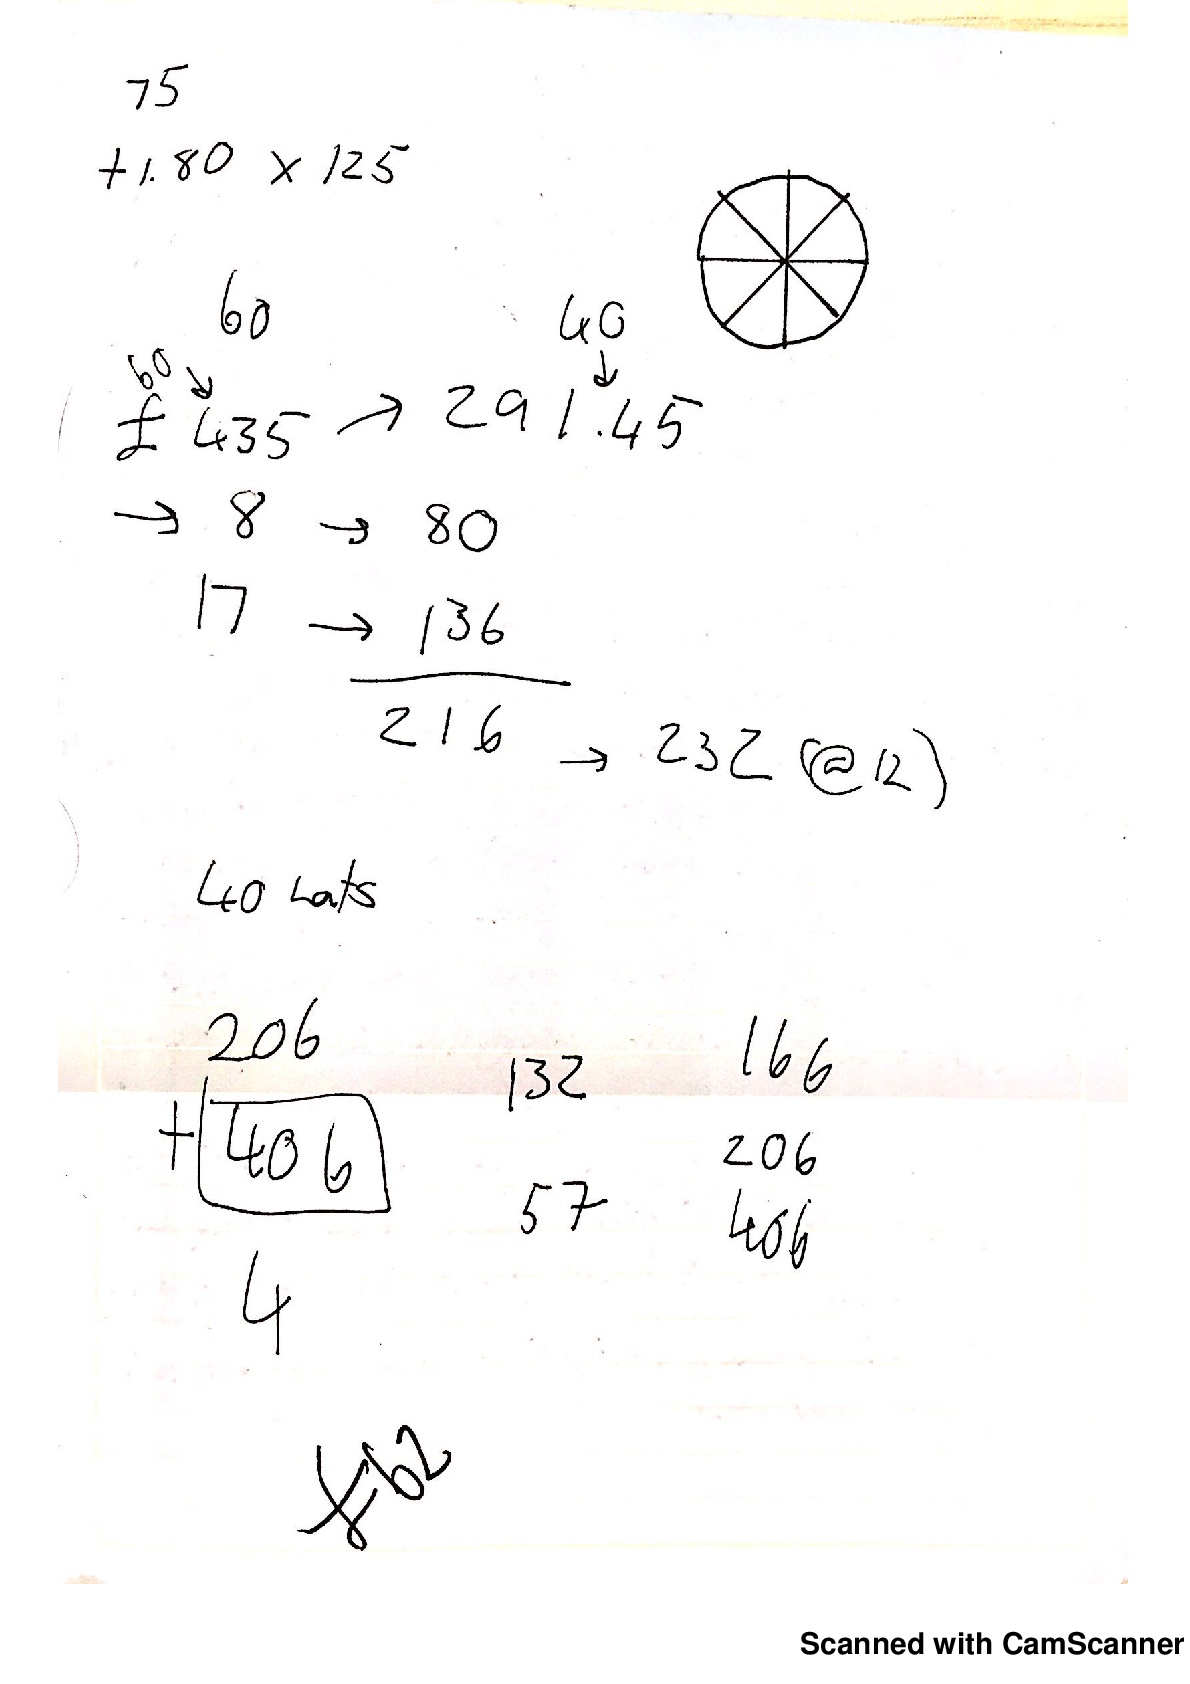 75
+1.80 x 125
60 40
60
£435 → 291.45
→ 8 → 80
17 → 136
216 → 232 (@12)
40 Lats
206 132 166
+ 406 57 206
406
4
£62
Scanned with CamScanner